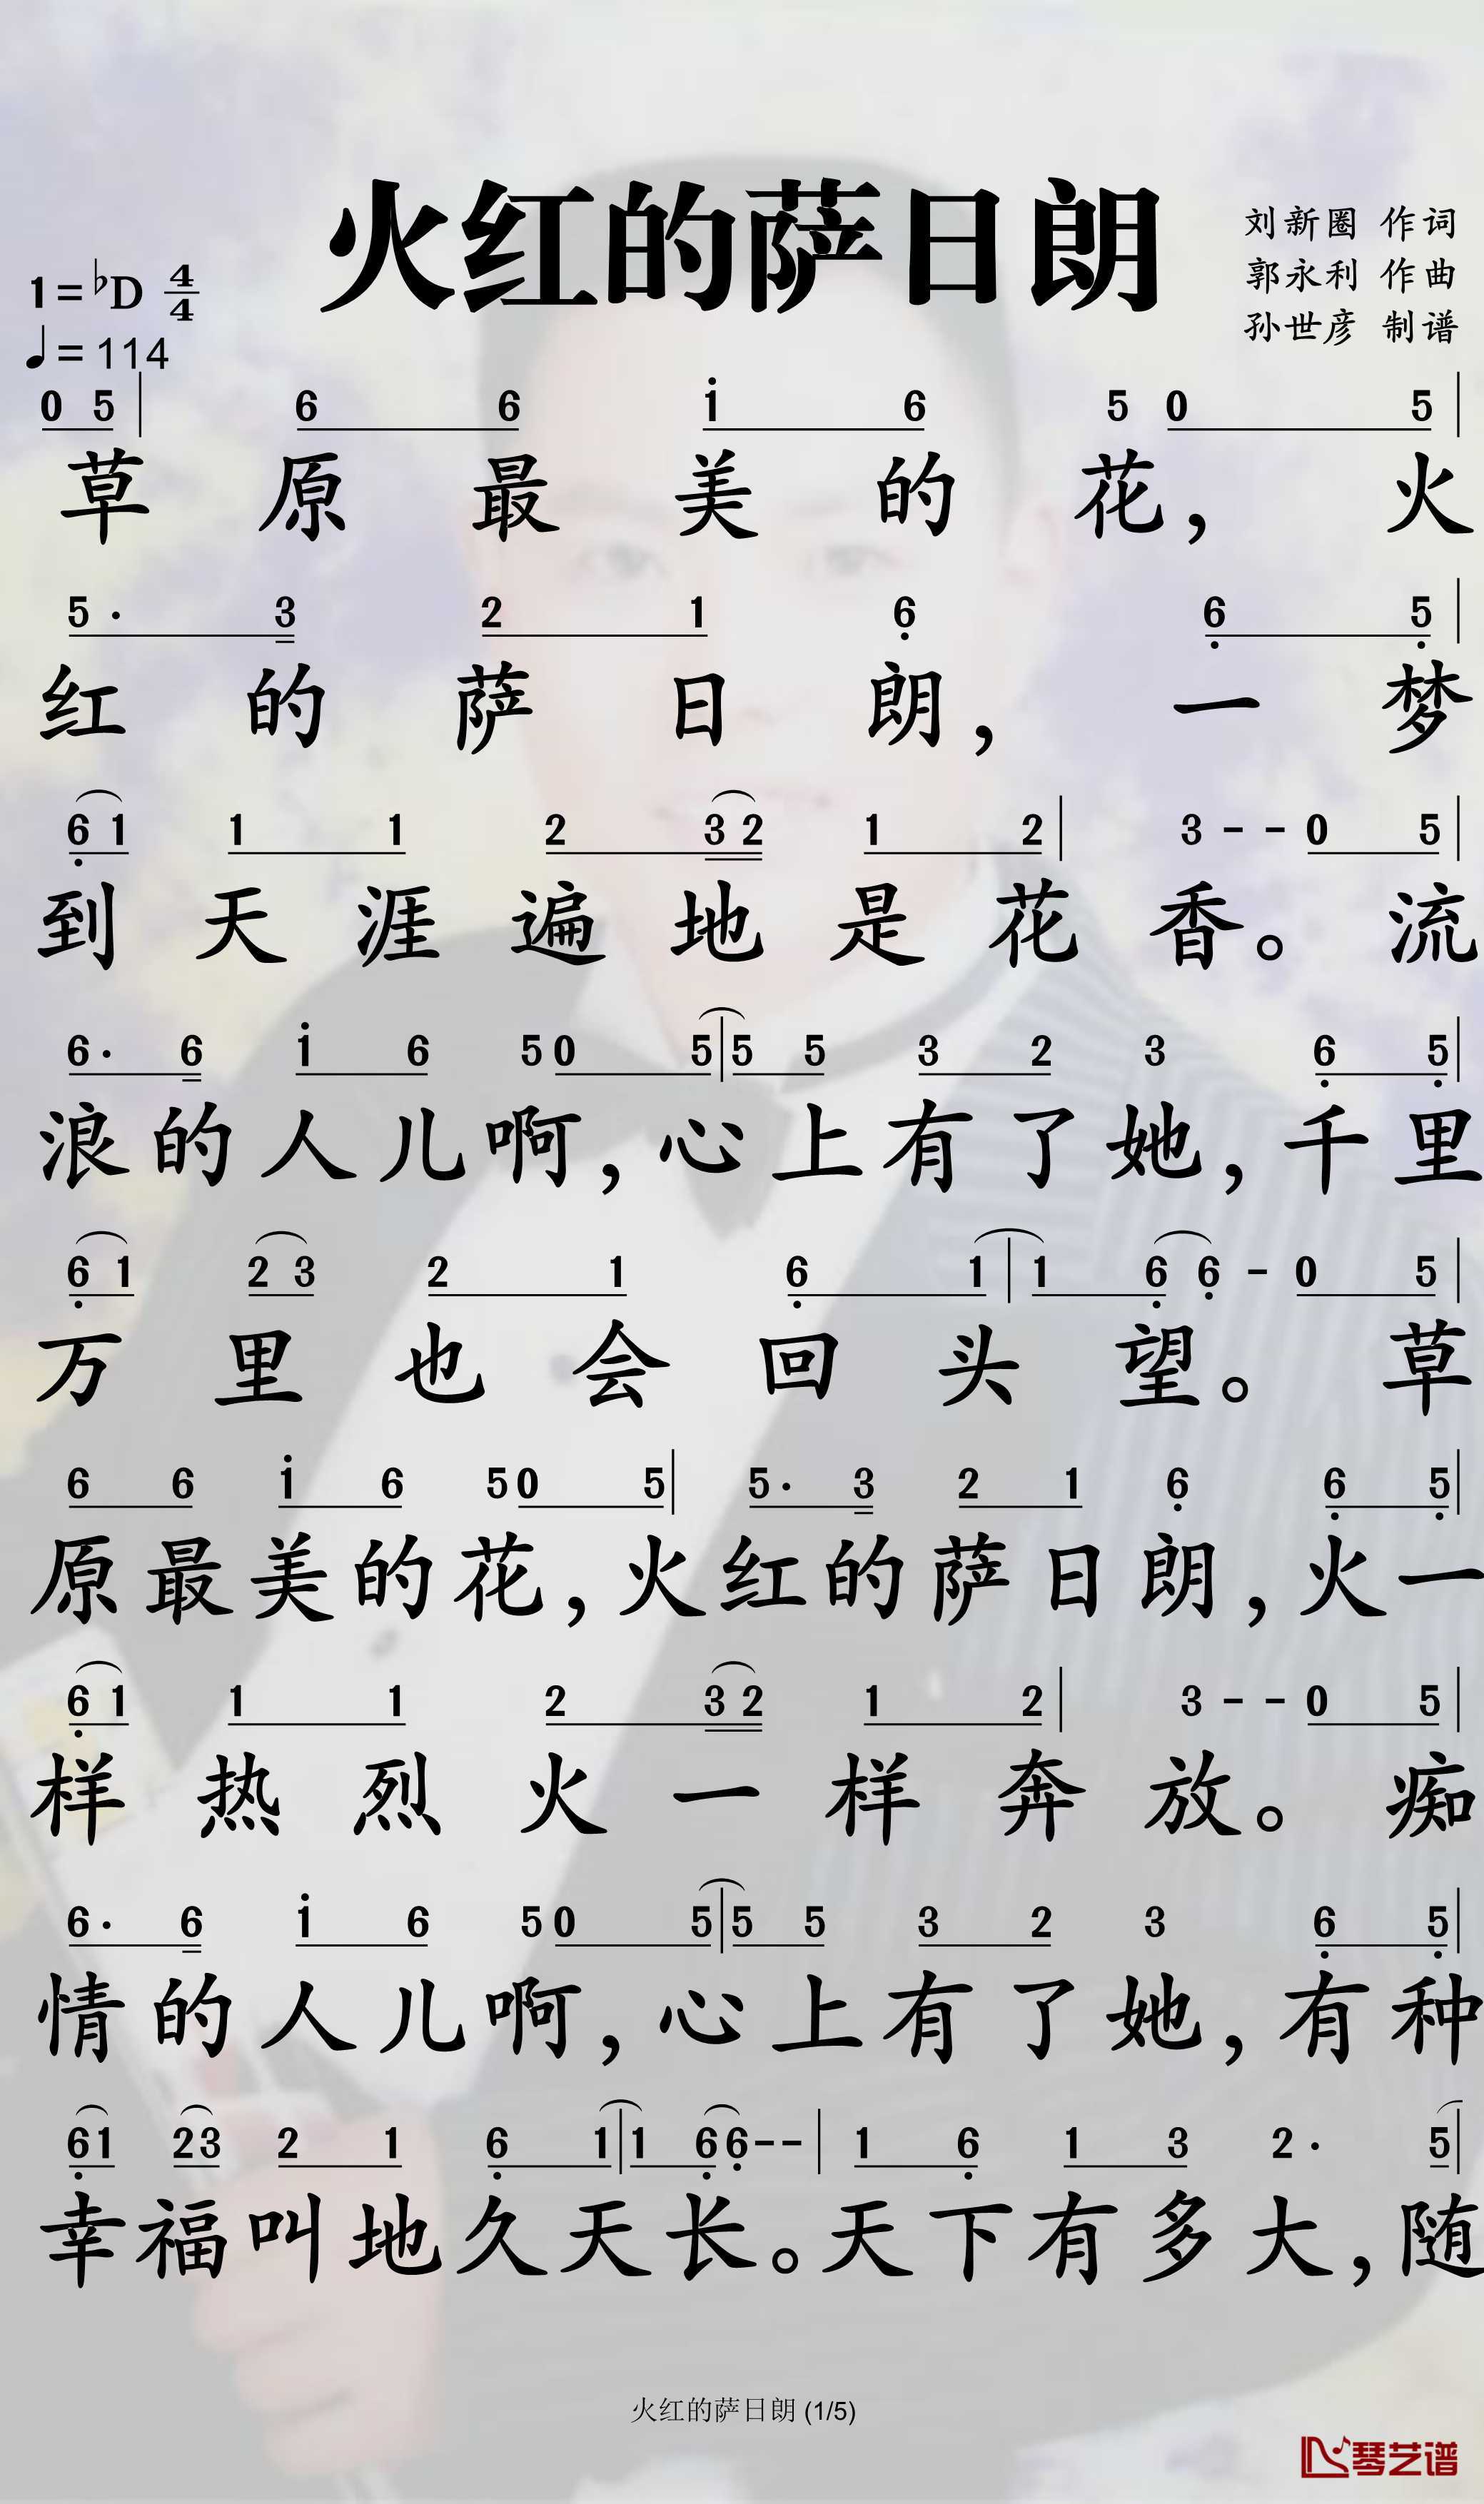 火红的萨日朗
刘新圈 作词
郭永利 作曲
孙世彦 制谱
1=♭D 4/4
♩=114
0 5 | 6 6 i 6 5 0 5 |
草原最美的花，火
5· 3 2 1 6 6 5 |
红的萨日朗，一梦
6 1 1 1 2 3 2 1 2 | 3 - - 0 5 |
到天涯遍地是花香。流
6· 6 i 6 5 0 5 | 5 5 3 2 3 6 5 |
浪的人儿啊，心上有了她，千里
6 1 2 3 2 1 6 1 | 1 6 6 - 0 5 |
万里也会回头望。草
6 6 i 6 5 0 5 | 5· 3 2 1 6 6 5 |
原最美的花，火红的萨日朗，火一
6 1 1 1 2 3 2 1 2 | 3 - - 0 5 |
样热烈火一样奔放。痴
6· 6 i 6 5 0 5 | 5 5 3 2 3 6 5 |
情的人儿啊，心上有了她，有种
6 1 2 3 2 1 6 1 | 1 6 6 - - | 1 6 1 3 2· 5 |
幸福叫地久天长。天下有多大，随
火红的萨日朗 (1/5)
琴艺谱